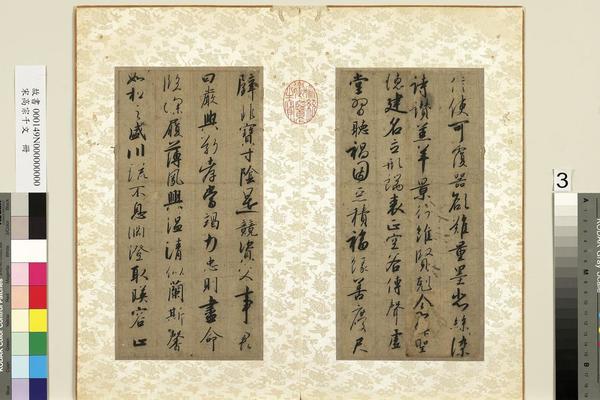 信使可覆器欲難量墨悲絲染
詩讚羔羊景行維賢剋念作聖
德建名立形端表正空谷傳聲虛
堂習聽禍因惡積福緣善慶尺
璧非寶寸陰是競資父事君
曰嚴與敬孝當竭力忠則盡命
臨深履薄夙興溫凊似蘭斯馨
如松之盛川流不息淵澄取暎容止
故書 000149N000000000
宋高宗千文 冊
3
KODAK Color Control Patches
KODAK Gray
A
M
B